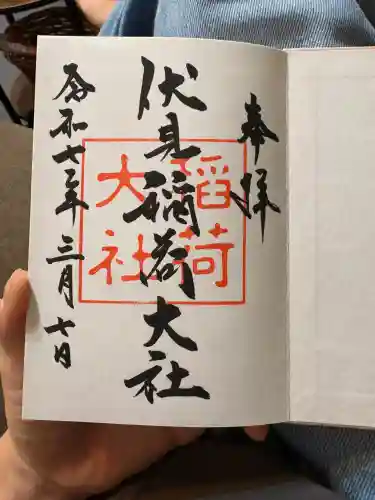 奉拝
伏見稲荷大社
稲荷
大社
令和七年三月七日